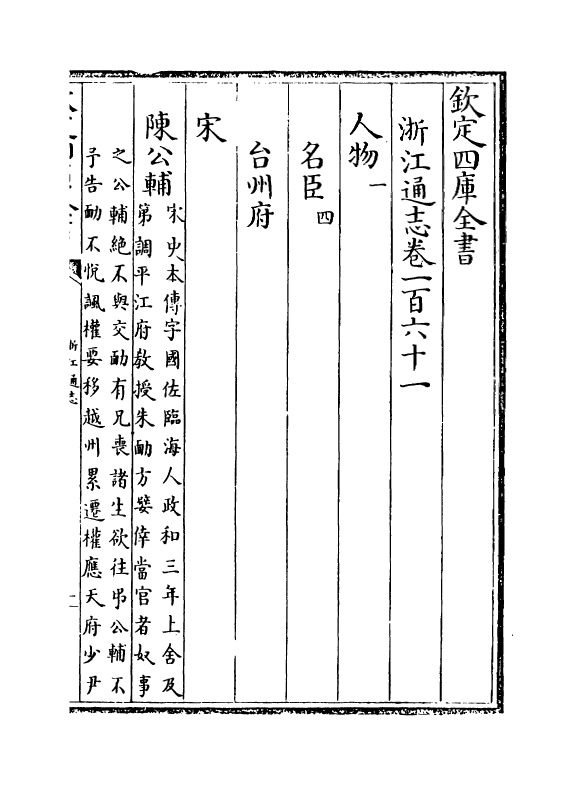 欽定四庫全書
浙江通志卷一百六十一
人物一
名臣四
台州府
宋
陳公輔
宋史本傳字國佐臨海人政和三年上舍及
第調平江府教授朱勔方嬖倖當官者奴事
之公輔絶不與交勔有兄喪諸生欲往弔公輔不
予告勔不悦諷權要移越州累遷權應天府少尹
浙江通志